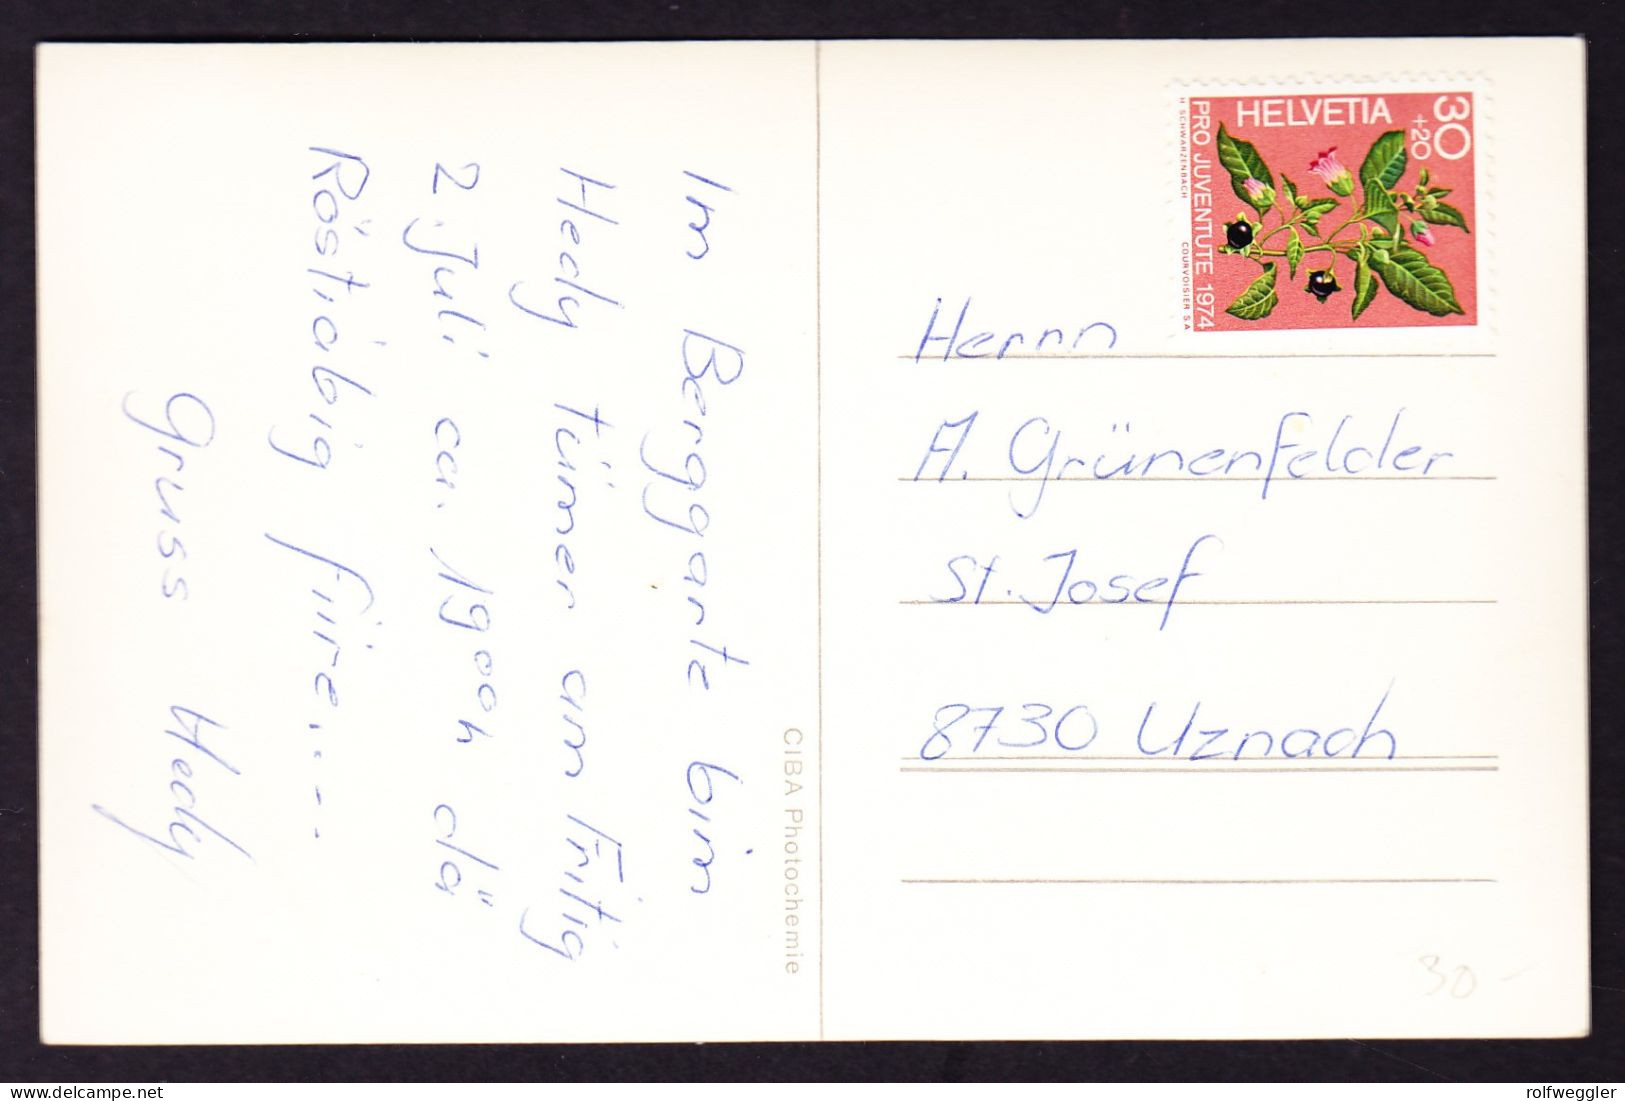 Im Berggarte bim
Hedy tümer am Friitig
2. Juli ca. 1900h dä
Röstiabig fiire.....
Gruss Hedy
CIBA Photochemie
HELVETIA
30
+20
PRO JUVENTUTE 1974
H SCHWARZENBACH COURVOISIER S A
Herrn
A. Grünenfelder
St. Josef
8730 Uznach
30 -
rolfweggler